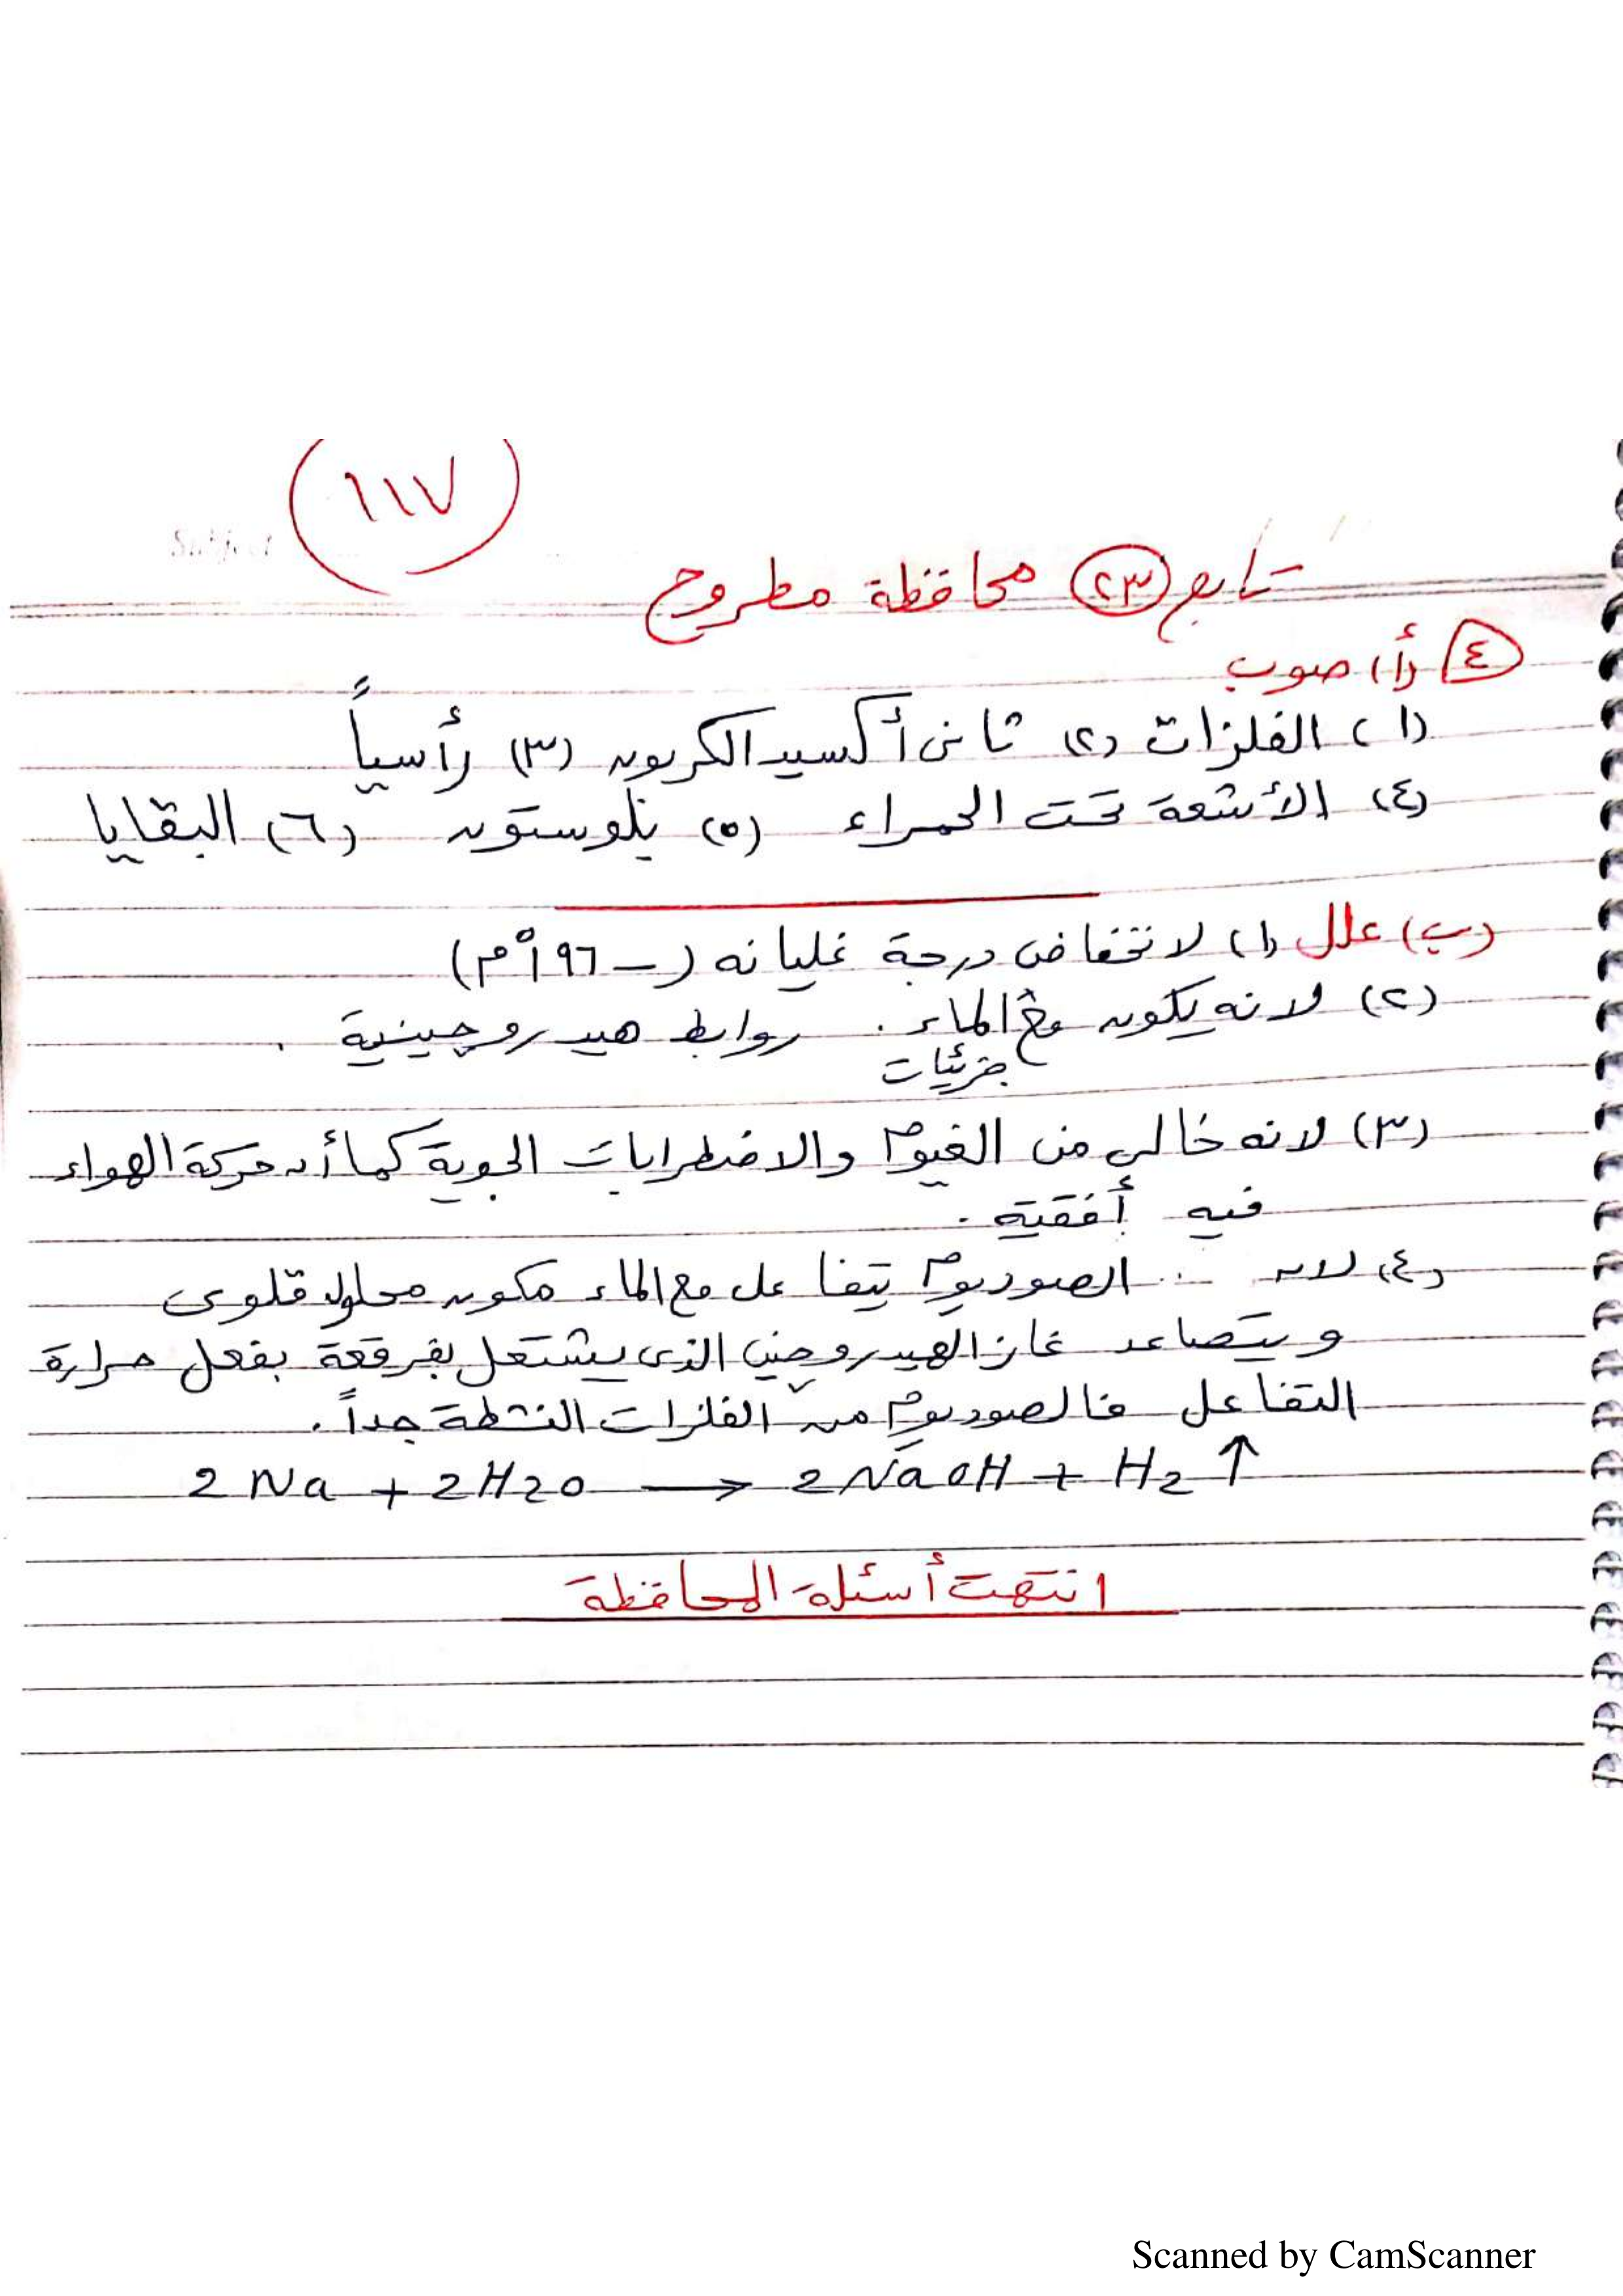 ١١٧
Subject
تابع (٢٣) محافظة مطروح
٤ (أ) صوب
(١) الفلزات (٢) ثانى أكسيد الكربون (٣) رأسياً
(٤) الأشعة تحت الحمراء (٥) بلوستون (٦) البقايا
(ب) علل (١) لانخفاض درجة غليانه (-١٩٦°م)
(٢) لانه يكون مع الماء. روابط هيدروجينية.
جزيئات
(٣) لانه خالى من الغيوم والاضطرابات الجوية كما أن حركة الهواء
فيه أفقية.
(٤) لان .. الصوديوم يتفاعل مع الماء مكون محلول قلوى
ويتصاعد غاز الهيدروجين الذى يشتعل بفرقعة بفعل حرارة
التفاعل فالصوديوم من الفلزات النشطة جداً.
2 Na + 2H2O → 2 NaOH + H2 ↑
انتهت أسئلة المحافظة
Scanned by CamScanner